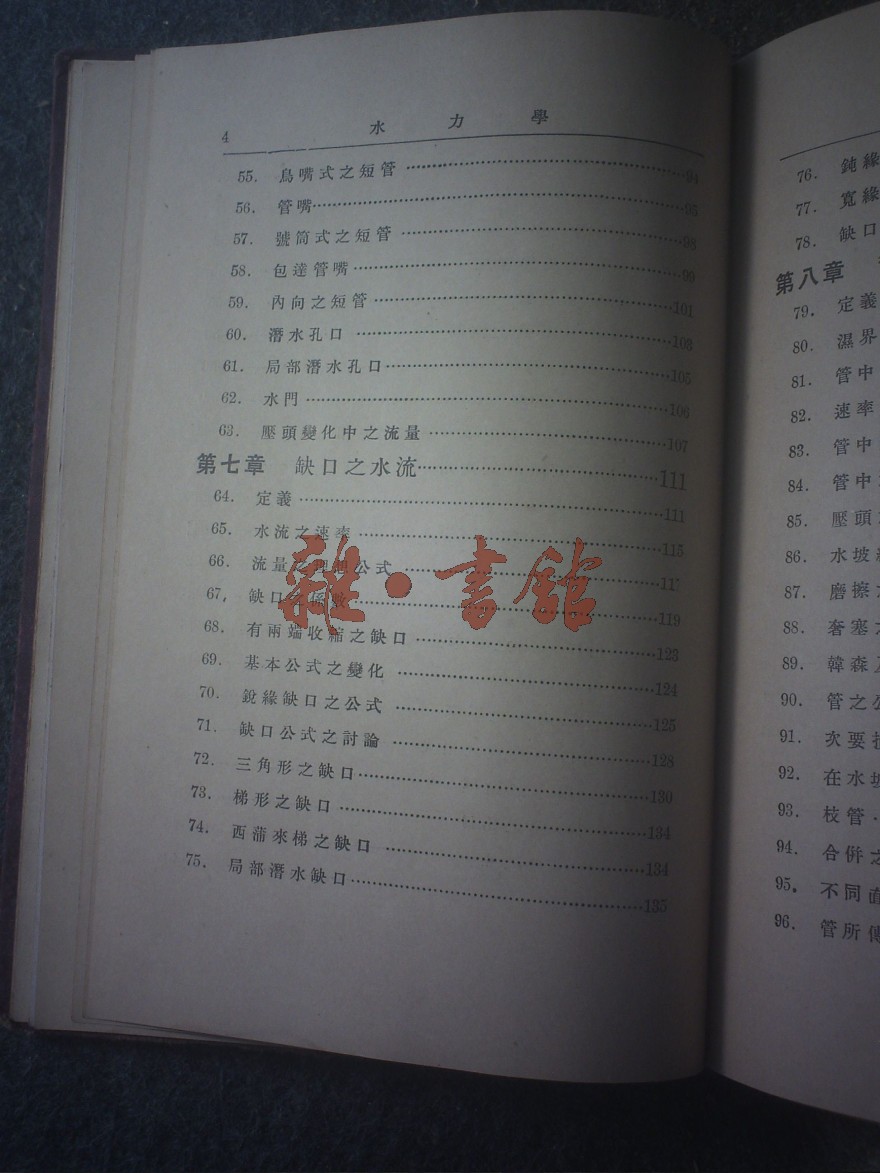 4 水力學
55. 鳥嘴式之短管 94
56. 管嘴 95
57. 號筒式之短管 98
58. 包達管嘴 99
59. 內向之短管 101
60. 潛水孔口 103
61. 局部潛水孔口 105
62. 水門 106
63. 壓頭變化中之流量 107
第七章 缺口之水流 111
64. 定義 111
65. 水流之速率 115
66. 流量之理想公式 117
67, 缺口之係數 119
68. 有兩端收縮之缺口 123
69. 基本公式之變化 124
70. 銳緣缺口之公式 125
71. 缺口公式之討論 128
72. 三角形之缺口 130
73. 梯形之缺口 134
74. 西蒲來梯之缺口 134
75. 局部潛水缺口 135
雜·書館
76. 鈍緣
77. 寬緣
78. 缺口
第八章
79. 定義
80. 濕界
81. 管中
82. 速率
83. 管中
84. 管中
85. 壓頭
86. 水坡
87. 磨擦
88. 奢塞之
89. 韓森
90. 管之公
91. 次要
92. 在水坡
93. 枝管
94. 合併之
95. 不同直
96. 管所